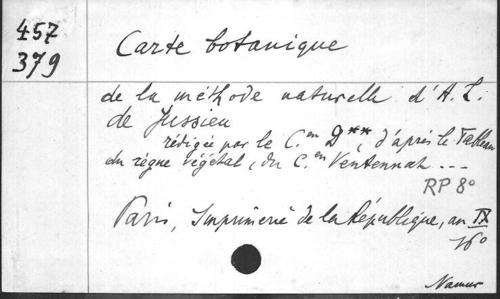 457
379
Carte botanique
de la méthode naturelle d'A. L.
de Jussieu
rédigée par le C.en D**, d'après le Tableau
du règne végétal, du C.en Ventennat ---
RP 8°
Paris, Imprimerie de la République, an IX
16°
Namur